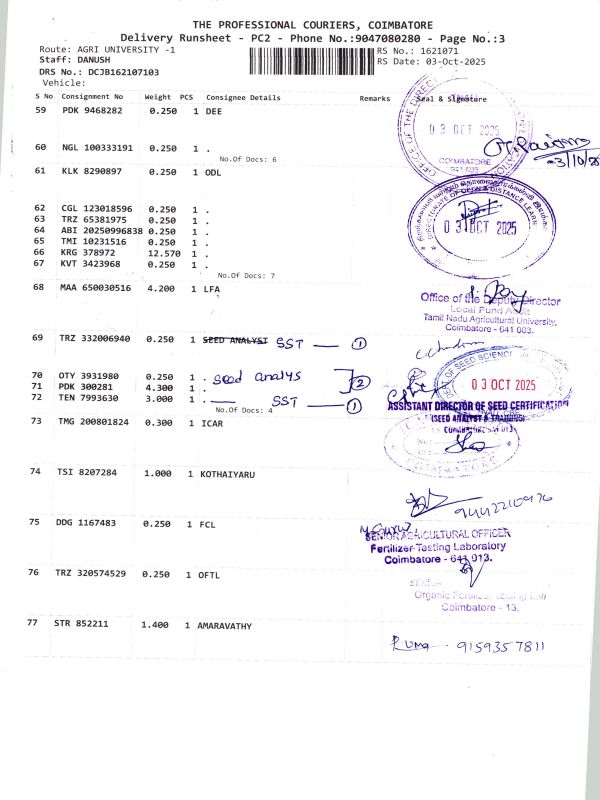 THE PROFESSIONAL COURIERS, COIMBATORE
Delivery Runsheet - PC2 - Phone No.:9047080280 - Page No.:3
Route: AGRI UNIVERSITY -1
RS No.: 1621071
Staff: DANUSH
RS Date: 03-Oct-2025
DRS No.: DCJB162107103
Vehicle:
S No Consignment No Weight PCS Consignee Details Remarks Seal & Signature
59 PDK 9468282 0.250 1 DEE
03 OCT 2025
60 NGL 100333191 0.250 1 .
No.Of Docs: 6
COIMBATORE
61 KLK 8290897 0.250 1 ODL
DIRECTORATE OF OPEN & DISTANCE LEARN
03 OCT 2025
62 CGL 123018596 0.250 1 .
63 TRZ 65381975 0.250 1 .
64 ABI 20250996838 0.250 1 .
65 TMI 10231516 0.250 1 .
66 KRG 378972 12.570 1 .
67 KVT 3423968 0.250 1 .
No.Of Docs: 7
68 MAA 650030516 4.200 1 LFA
Office of the Deputy Director
Local Fund Audit
Tamil Nadu Agricultural University,
Coimbatore - 641 003.
69 TRZ 332006940 0.250 1 SEED ANALYST SST — 1
70 OTY 3931980 0.250 1 . seed analys
71 PDK 300281 4.300 1 . 2
72 TEN 7993630 3.000 1 . — SST — 1
No.Of Docs: 4
OF SEED SCIENCE
03 OCT 2025
ASSISTANT DIRECTOR OF SEED CERTIFICATION
(SEED ANALYST & TRAINING)
73 TMG 200801824 0.300 1 ICAR
74 TSI 8207284 1.000 1 KOTHAIYARU
9442210976
75 DDG 1167483 0.250 1 FCL
SENIOR AGRICULTURAL OFFICER
Fertilizer Testing Laboratory
Coimbatore - 641 013.
76 TRZ 320574529 0.250 1 OFTL
Coimbatore - 13.
77 STR 852211 1.400 1 AMARAVATHY
Ruma - 9159357811